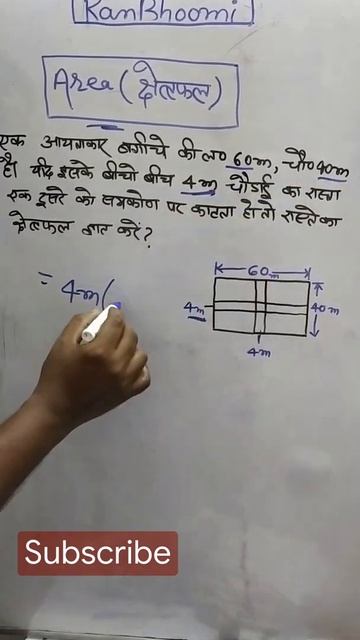 RanBhoomi
Area (क्षेत्रफल)
एक आयताकार बगीचे की ल० 60m, चौ० 40m
है। यदि इसके बीचो बीच 4m चौड़ाई का रास्ता
एक दूसरे को समकोण पर काटता हो तो रास्ते का
क्षेत्रफल ज्ञात करें?
60m
= 4m(
4m
40m
4m
Subscribe